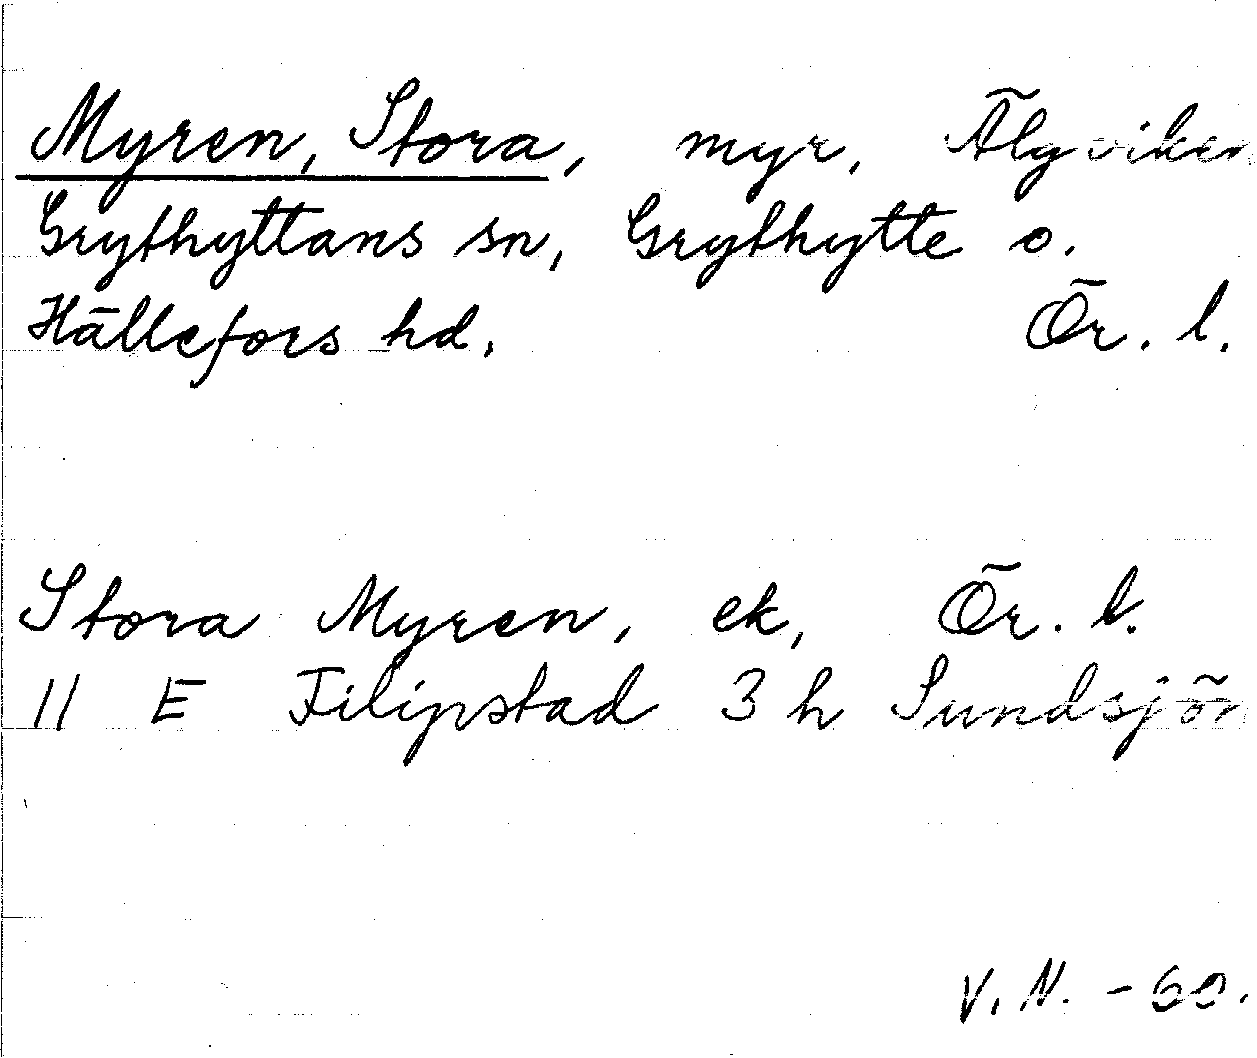 Myren, Stora, myr, Älgviken
Grythyttans sn, Grythytte o.
Hällefors hd. Ör. l.
Stora Myren, ek, Ör. l.
11 E Filipstad 3 h Sundsjön
V. N. - 60.